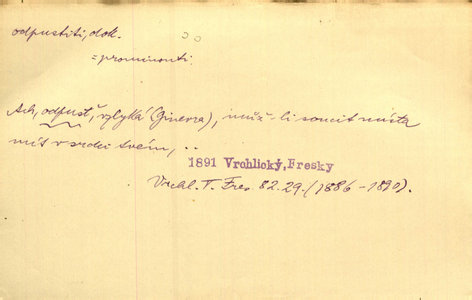 odpustiti, dok.
= prominouti.
Ach, odpusť, vzlyká (Ginevra), může-li soucit místa
mít v srdci tvém, ..
1891 Vrchlický, Fresky
Vrchl. T. Fres. 82.29. (1886-1890).